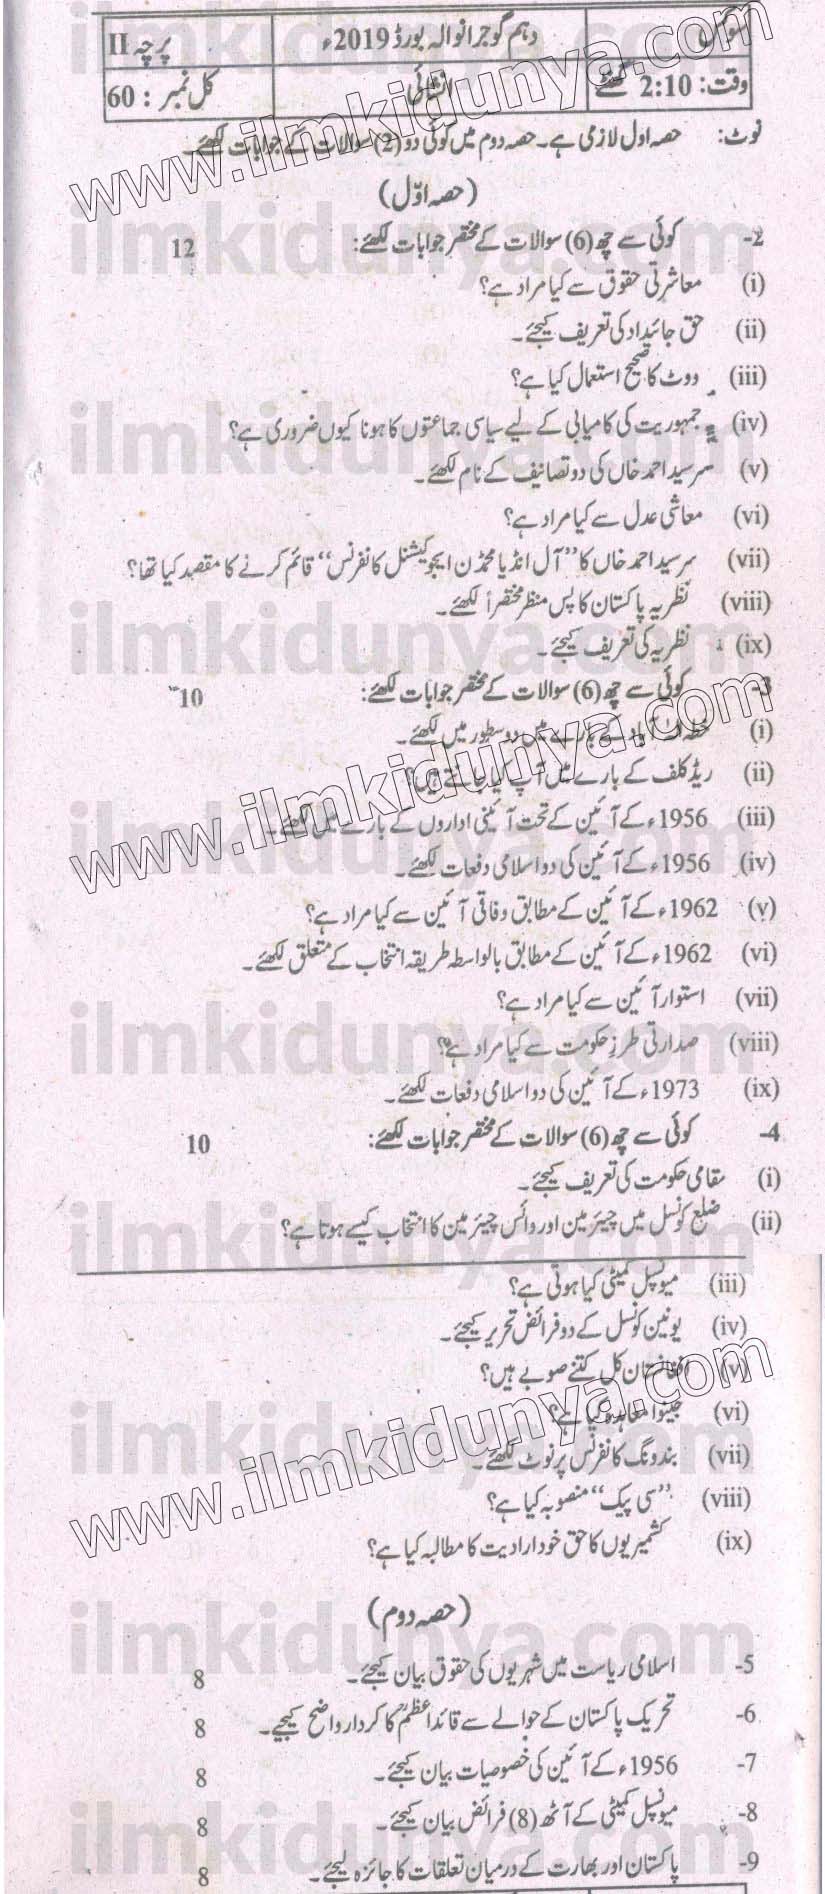 سوکس دہم گوجرانوالہ بورڈ 2019ء پرچہ II
وقت: 2:10 گھنٹے انشائی کل نمبر : 60
نوٹ: حصہ اول لازمی ہے۔ حصہ دوم میں کوئی دو (2) سوالات کے جوابات لکھئے۔
(حصہ اوّل)
2- کوئی سے چھ (6) سوالات کے مختصر جوابات لکھئے: 12
(i) معاشرتی حقوق سے کیا مراد ہے؟
(ii) حق جائیداد کی تعریف کیجئے۔
(iii) ووٹ کا صحیح استعمال کیا ہے؟
(iv) جمہوریت کی کامیابی کے لیے سیاسی جماعتوں کا ہونا کیوں ضروری ہے؟
(v) سرسید احمد خاں کی دو تصانیف کے نام لکھئے۔
(vi) معاشی عدل سے کیا مراد ہے؟
(vii) سرسید احمد خاں کا ”آل انڈیا محمڈن ایجوکیشنل کانفرنس“ قائم کرنے کا مقصد کیا تھا؟
(viii) نظریہ پاکستان کا پس منظر مختصراً لکھئے۔
(ix) نظریہ کی تعریف کیجئے۔
3- کوئی سے چھ (6) سوالات کے مختصر جوابات لکھئے: 10
(i) خطبہ الٰہ آباد کے بارے میں دو سطور میں لکھئے۔
(ii) ریڈ کلف کے بارے میں آپ کیا جانتے ہیں؟
(iii) 1956ء کے آئین کے تحت آئینی اداروں کے بارے میں لکھئے۔
(iv) 1956ء کے آئین کی دو اسلامی دفعات لکھئے۔
(v) 1962ء کے آئین کے مطابق وفاقی آئین سے کیا مراد ہے؟
(vi) 1962ء کے آئین کے مطابق بالواسطہ طریقہ انتخاب کے متعلق لکھئے۔
(vii) استوار آئین سے کیا مراد ہے؟
(viii) صدارتی طرزِ حکومت سے کیا مراد ہے؟
(ix) 1973ء کے آئین کی دو اسلامی دفعات لکھئے۔
4- کوئی سے چھ (6) سوالات کے مختصر جوابات لکھئے: 10
(i) مقامی حکومت کی تعریف کیجئے۔
(ii) ضلع کونسل میں چیئرمین اور وائس چیئرمین کا انتخاب کیسے ہوتا ہے؟
(iii) میونسپل کمیٹی کیا ہوتی ہے؟
(iv) یونین کونسل کے دو فرائض تحریر کیجئے۔
(v) افغانستان کل کتنے صوبے ہیں؟
(vi) جینوا معاہدہ کیا ہے؟
(vii) بنڈونگ کانفرنس پر نوٹ لکھئے۔
(viii) ”سی پیک“ منصوبہ کیا ہے؟
(ix) کشمیریوں کا حق خود ارادیت کا مطالبہ کیا ہے؟
(حصہ دوم)
5- اسلامی ریاست میں شہریوں کی حقوق بیان کیجئے۔ 8
6- تحریک پاکستان کے حوالے سے قائداعظمؒ کا کردار واضح کیجیے۔ 8
7- 1956ء کے آئین کی خصوصیات بیان کیجئے۔ 8
8- میونسپل کمیٹی کے آٹھ (8) فرائض بیان کیجئے۔ 8
9- پاکستان اور بھارت کے درمیان تعلقات کا جائزہ لیجئے۔ 8
www.ilmkidunya.com
www.ilmkidunya.com
www.ilmkidunya.com
ilmkidunya.com
ilmkidunya.com
ilmkidunya.com
ilmkidunya.com
ilmkidunya.com
ilmkidunya.com
ilmkidunya.com
ilmkidunya.com
ilmkidunya.com